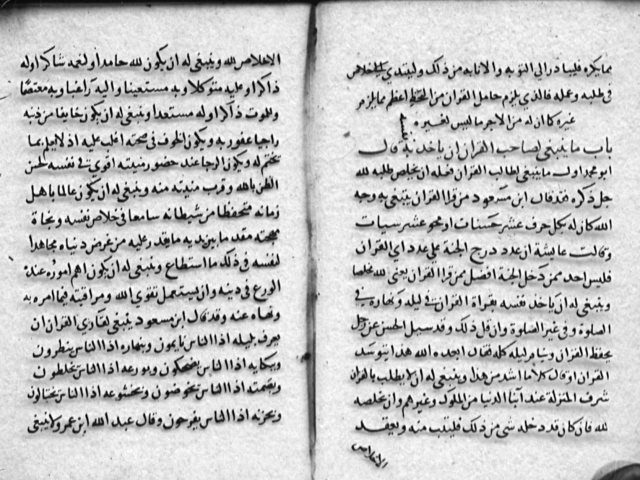 مما يكره فليبادر الى التوبة والانابة من ذلك وليبتدي بالاخلاص
في طلبه وعمله فالذي يلزم حامل القران من التحفظ اعظم مما يلزم
غيره كما ان له من الاجر ما ليس لغيره
باب ما ينبغي لصاحب القران ان ياخذ به قال
ابو محمد اول ما ينبغي لطالب القران فعله ان يخلص طلبه لله
جل ذكره فقد قال ابن مسعود من قرا القران يبتغي به وجه
الله كان له بكل حرف عشر حسنات او محو عشر سيات
وقالت عايشة ان عدد درج الجنة على عدد اي القران
فليس احد ممن دخل الجنة افضل ممن قرا القران يعني لله مخلصا
وينبغي له ان ياخذ نفسه بقراة القران في ليله ونهاره في
الصلوة وفي غير الصلوة وان قل ذلك وقد سيل الحسن عن رجل
يحفظ القران وينام ليله كله فقال ابعده الله هذا يتوسد
القران او قال كلاما اشد من هذا وينبغي له ان لا يطلب بالقران
شرف المنزلة عند ابنا الدنيا من الملوك وغيرهم وان يخلصه
لله فان كان قد دخله شي من ذلك فليتب منه ويعتقد
الاخلاص
الاخلاص لله وينبغي له ان يكون لله حامدا ولنعمه شاكرا وله
ذاكرا وعليه متوكلا وبه مستعينا واليه راغبا وبه معتصما
وللموت ذاكرا وله مستعدا وينبغي له ان يكون خايفا من ذنبه
راجيا عفو ربه ويكون الخوف في صحته اغلب عليه اذ لا يعلم بما
يختم له ويكون الرجا عند حضور منيته اقوى في نفسه لحسن
الظن بالله وقرب منيته منه وينبغي له ان يكون عالما باهل
زمانه متحفظا من شيطانه ساعيا في خلاص نفسه ونجاة
مهجته مقدما بين يديه ما يقدر عليه من عرض دنياه مجاهدا
لنفسه في ذلك ما استطاع وينبغي له ان يكون اهم اموره عنده
الورع في دينه وان يستعمل تقوى الله ومراقبته فيما امره به
ونهاه عنه وقد قال ابن مسعود ينبغي لقاري القران ان
يعرف بليله اذا الناس نايمون وبنهاره اذا الناس مفطرون
وببكايه اذا الناس يضحكون وبورعه اذا الناس يخلطون
وبصمته اذا الناس يخوضون وبخشوعه اذا الناس يختالون
وبحزنه اذا الناس يفرحون وقال عبد الله ابن عمر ولا ينبغي